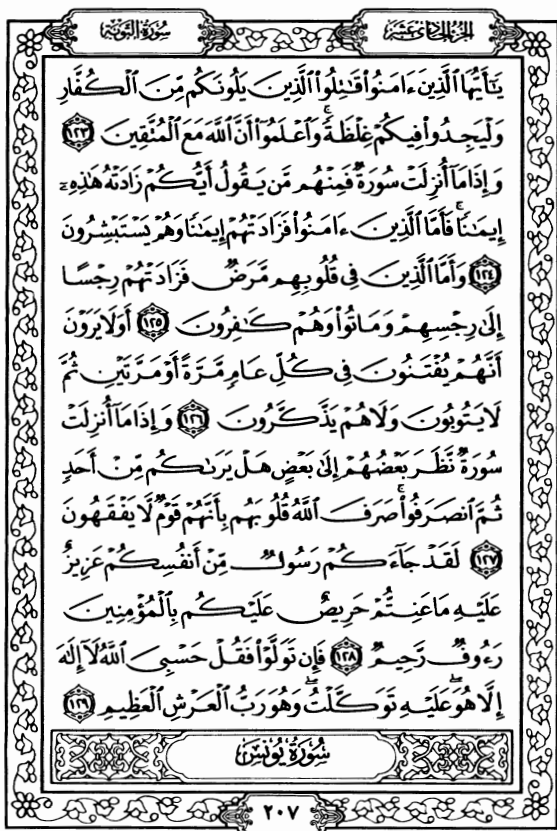 سُورَةُ التَّوبَةِ
الجُزْءُ الحَادِي عَشَرَ
يَٰٓأَيُّهَا ٱلَّذِينَ ءَامَنُواْ قَٰتِلُواْ ٱلَّذِينَ يَلُونَكُم مِّنَ ٱلْكُفَّارِ
وَلْيَجِدُواْ فِيكُمْ غِلْظَةً ۚ وَٱعْلَمُوٓاْ أَنَّ ٱللَّهَ مَعَ ٱلْمُتَّقِينَ ١٢٣
وَإِذَا مَآ أُنزِلَتْ سُورَةٌ فَمِنْهُم مَّن يَقُولُ أَيُّكُمْ زَادَتْهُ هَٰذِهِۦٓ
إِيمَٰنًا ۚ فَأَمَّا ٱلَّذِينَ ءَامَنُواْ فَزَادَتْهُمْ إِيمَٰنًا وَهُمْ يَسْتَبْشِرُونَ
١٢٤ وَأَمَّا ٱلَّذِينَ فِى قُلُوبِهِم مَّرَضٌ فَزَادَتْهُمْ رِجْسًا
إِلَىٰ رِجْسِهِمْ وَمَاتُواْ وَهُمْ كَٰفِرُونَ ١٢٥ أَوَلَا يَرَوْنَ
أَنَّهُمْ يُفْتَنُونَ فِى كُلِّ عَامٍ مَّرَّةً أَوْ مَرَّتَيْنِ ثُمَّ
لَا يَتُوبُونَ وَلَا هُمْ يَذَّكَّرُونَ ١٢٦ وَإِذَا مَآ أُنزِلَتْ
سُورَةٌ نَّظَرَ بَعْضُهُمْ إِلَىٰ بَعْضٍ هَلْ يَرَىٰكُم مِّنْ أَحَدٍ
ثُمَّ ٱنصَرَفُواْ ۚ صَرَفَ ٱللَّهُ قُلُوبَهُم بِأَنَّهُمْ قَوْمٌ لَّا يَفْقَهُونَ
١٢٧ لَقَدْ جَآءَكُمْ رَسُولٌ مِّنْ أَنفُسِكُمْ عَزِيزٌ
عَلَيْهِ مَا عَنِتُّمْ حَرِيصٌ عَلَيْكُم بِٱلْمُؤْمِنِينَ
رَءُوفٌ رَّحِيمٌ ١٢٨ فَإِن تَوَلَّوْاْ فَقُلْ حَسْبِىَ ٱللَّهُ لَآ إِلَٰهَ
إِلَّا هُوَ ۖ عَلَيْهِ تَوَكَّلْتُ ۖ وَهُوَ رَبُّ ٱلْعَرْشِ ٱلْعَظِيمِ ١٢٩
سُورَةُ يُونُسَ
٢٠٧